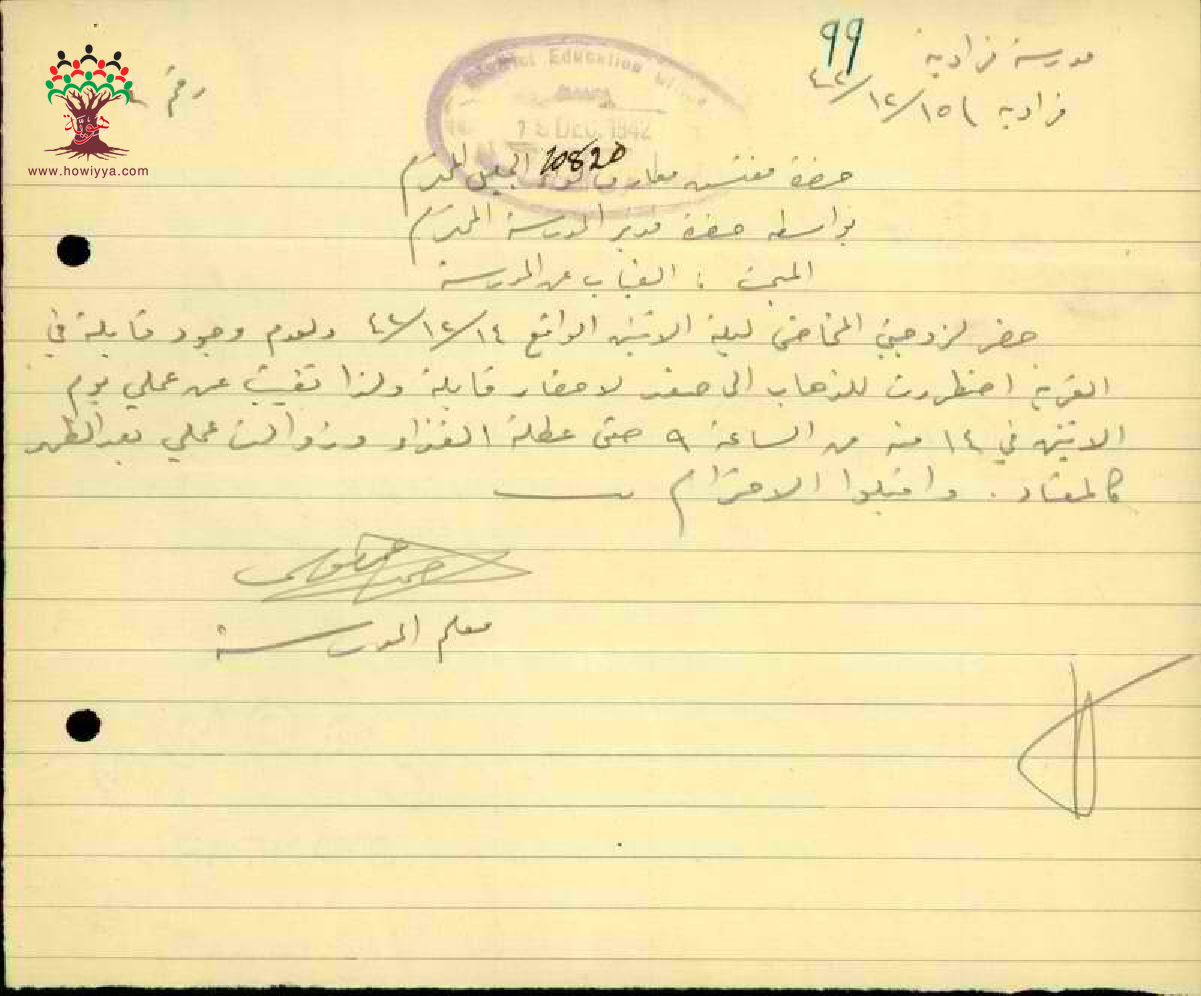 99
مدرسة فرادية
فرادية ١٥/١٢/٤٢
رقم
District Education Office
18 DEC 1942
10820
حضرة مفتش معارف لواء الجليل المحترم
بواسطة حضرة مدير المدرسة المحترم
المبحث : الغياب عن المدرسة
حضر لزوجتي المخاض ليلة الاثنين الواقع ١٤/١٢/٤٢ ولعدم وجود قابلة في
القرية اضطررت للذهاب الى صفد لاحضار قابلة ولذا تغيبت عن عملي يوم
الاثنين في ١٤ منه من الساعة ٩ حتى عطلة الغذاء وزوالت عملي بعد الظهر
كالمعتاد . واقبلوا الاحترام
معلم المدرسة
هوية
www.howiyya.com